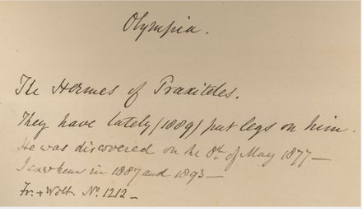 Olympia.
The Hermes of Praxiteles.
They have lately (1889) put legs on him.
He was discovered on the 8th of May 1877 —
I saw him in 1887 and 1893 —
Fr. + Wolt. No. 1212 —